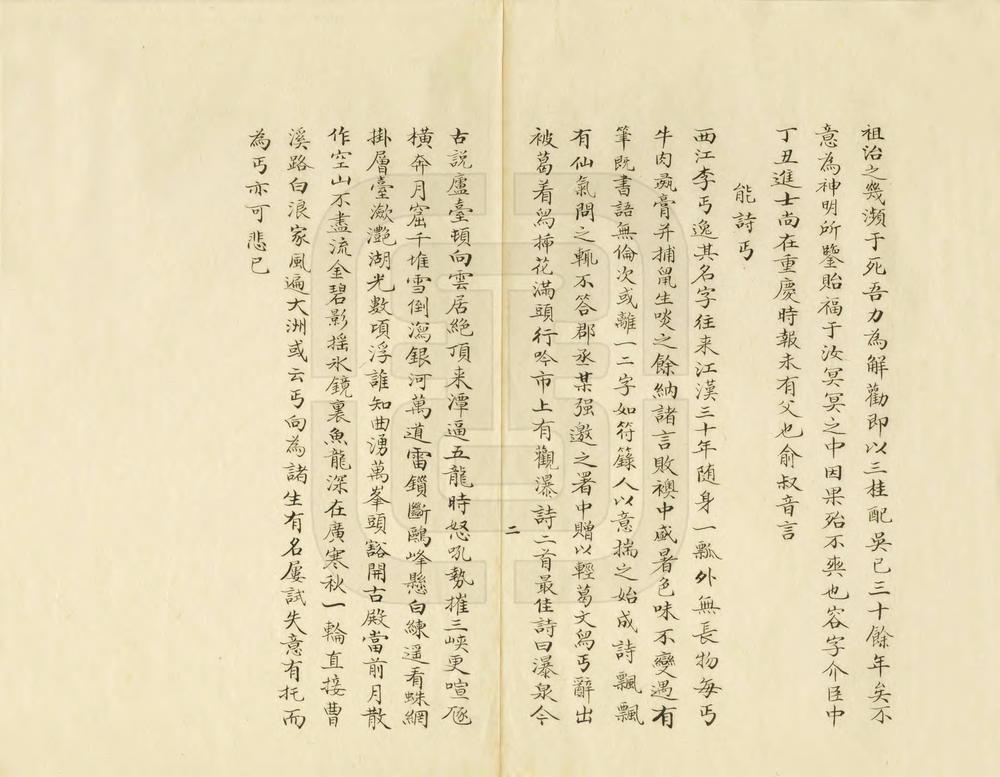 祖治之幾瀕于死吾力為解勸即以三桂配吳已三十餘年矣不
意為神明所鑒貽福于汝冥冥之中因果殆不爽也容字介臣中
丁丑進士尚在重慶時報未有父也俞叔音言
能詩丐
西江李丐逸其名字往来江漢三十年随身一瓢外無長物每丐
牛肉彘膏并捕鼠生啖之餘納諸言敗襖中盛暑色味不變遇有
筆既書語無倫次或離一二字如符籙人以意揣之始成詩飄飄
有仙氣問之輒不答郡丞某强邀之署中贈以輕葛文舄丐辭出
被葛着舄揷花滿頭行吟市上有觀瀑詩二首最佳詩曰瀑泉今
二
古説廬臺頓向雲居絶頂来潭逼五龍時怒吼勢摧三峽更喧豗
橫奔月窟千堆雪倒瀉銀河萬道雷鎖斷鷗峰懸白練遥看蛛網
掛層臺瀲灔湖光數頃浮誰知曲湧萬峯頭豁開古殿當前月散
作空山不盡流金碧影摇氷鏡裏魚龍深在廣寒秋一輪直接曹
溪路白浪家風遍大洲或云丐向為諸生有名屢試失意有托而
為丐亦可悲已